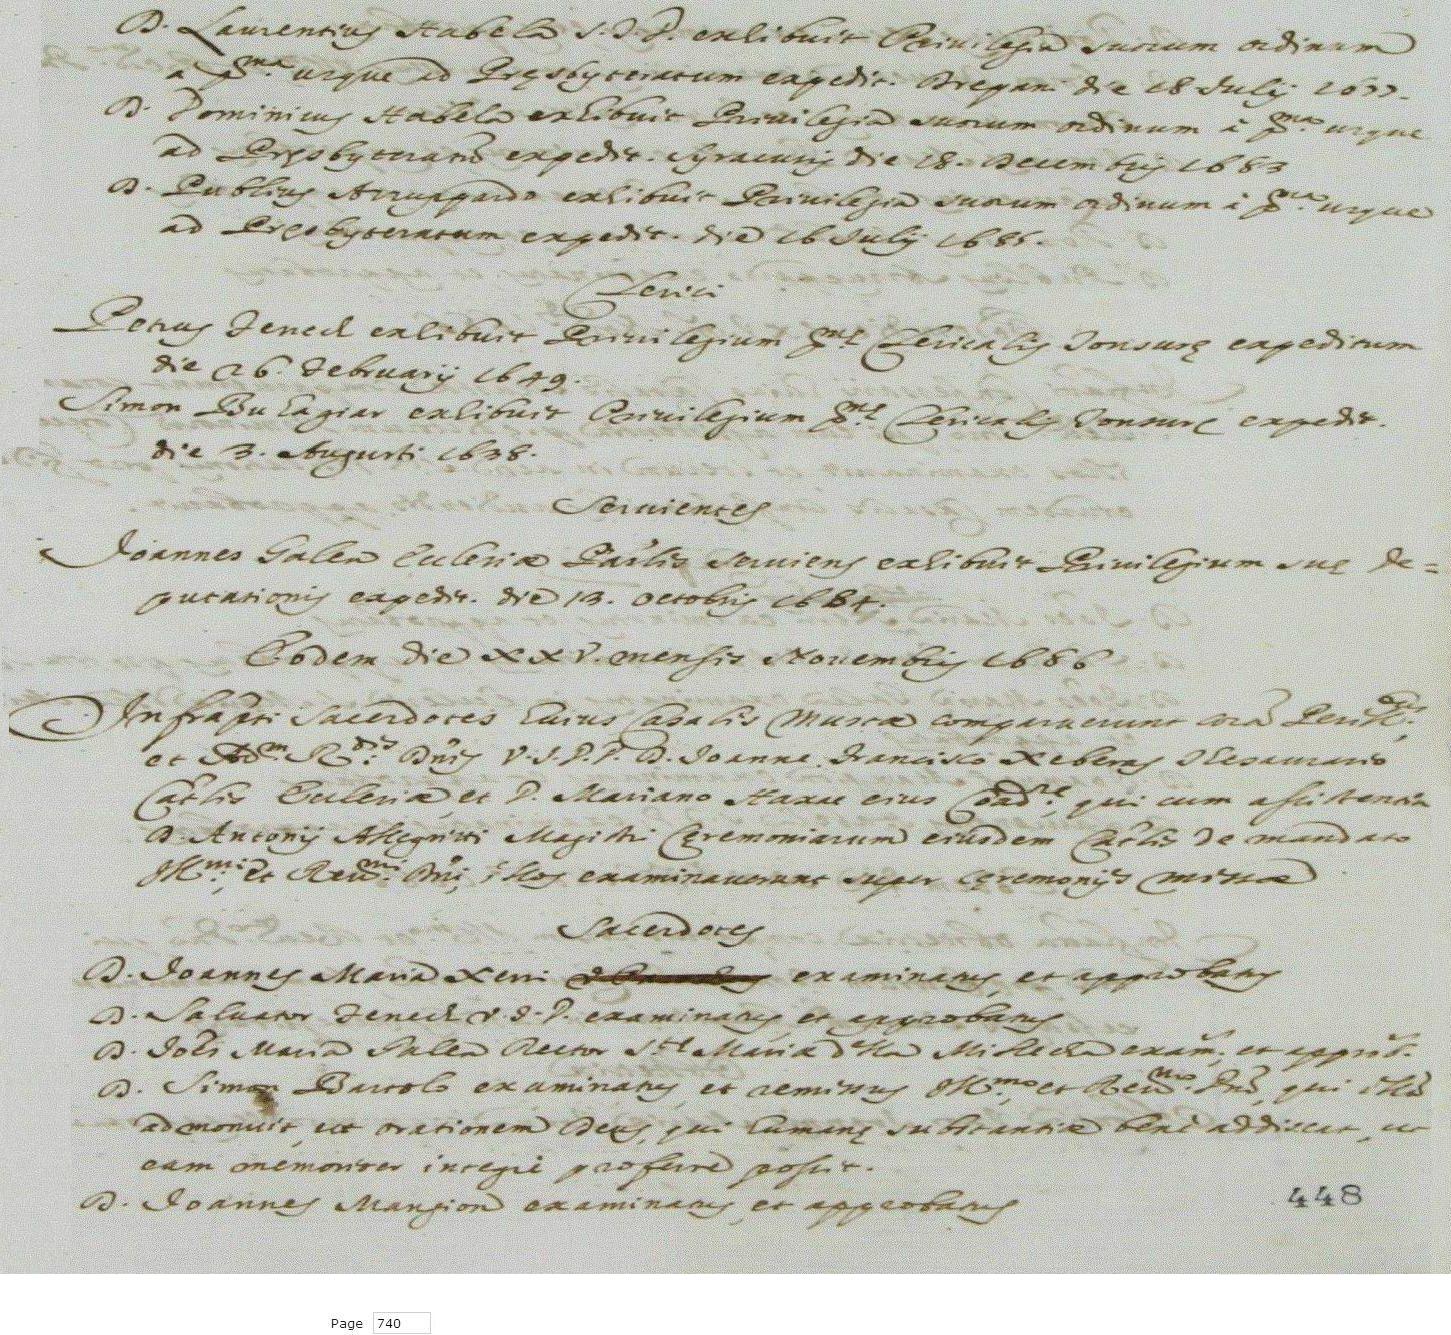 D. Laurentius Habela S. T. D. exhibuit Privilegia suorum ordinum
a p.ma usque ad Pręsbyteratum expedit. Drepani die 18 Julij
D. Dominicus Habela exhibuit Privilegia suorum ordinum à p.ma usque
ad Pręsbyteratũ expedit. Syracusis die 18. Decembris 1683
D. Publius exhibuit Privilegia suorum ordinum à p.ma usque
ad Pręsbyteratum expedit. die 16 Julij
Clerici
Petrus Fenech exhibuit Privilegium p.mę Clericalis Tonsurę expeditum
die 26. Februarij 1649.
Simon Bu Hagiar exhibuit Privilegium p.mę Clericalis Tonsurę expedit.
die 3. Augusti 1638.
Servientes
Joannes Galea Ecclesiæ Par̃lis serviens exhibuit Privilegium suę de=
putationis expedit. die 13. Octobris 1684.
Eodem die XXV. mensis Novembris 1686
Infrap̃ti Sacerdotes huius Casalis Muscæ comparuerunt corã
et Adm. R.dis Dñis V. J. D. D. D. Joanne Francisco Xeberras Thesaurario
Cat̃lis Ecclesiæ, et D. Mariano Haxac eius Coad.re, qui cum assistentia
D. Antonij Allegritti Magistri Cęremoniarum eiusdem Cat̃lis de mandato
Ill.mi, et Rev.mi Dñi, illos examinaverunt super cęremonijs missæ
Sacerdotes
D. Joannes Maria Xerri examinatus, et approbatus
D. Salvator Fenech V. J. D. examinatus, et approbatus
D. Joẽs Maria Galea Rector S.tę Mariæ d'Ħa Misleħa exam̃. et approb̃.
D. Simon Bartolo examinatus, et remissus Ill.mo, et Rev.mo Dño, qui illũ
admonuit, ut orationem Deus, qui humanę substantiæ benè addiscat, ut
eam memoriter integrè proferre possit.
D. Joannes Mangion examinatus, et approbatus
448
Page 740